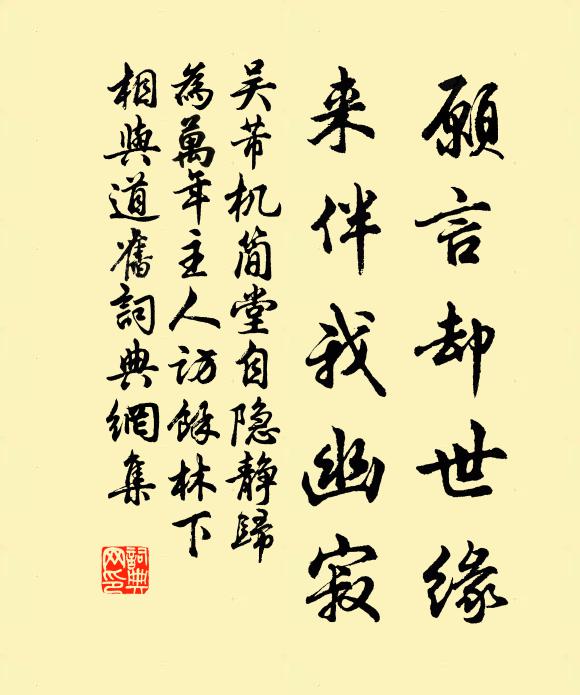 願言却世緣
来伴我幽寂
吴芾机简堂自隐静歸
為萬年主人訪餘林下
相與道舊詞典網集
詞典
网印